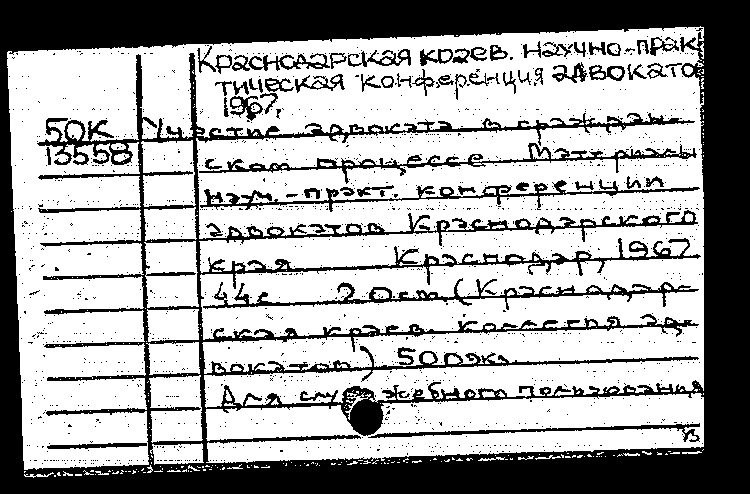 Краснодарская краев. научно-прак
тическая конференция адвокато
1967.
50К Участие адвоката в граждан-
13558 ском процессе Материалы
науч.-практ. конференции
адвокатов Краснодарского
края Краснодар, 1967
44с 20см (Краснодар-
ская краев. коллегия ад-
вокатов) 500экз
Для служебного пользования